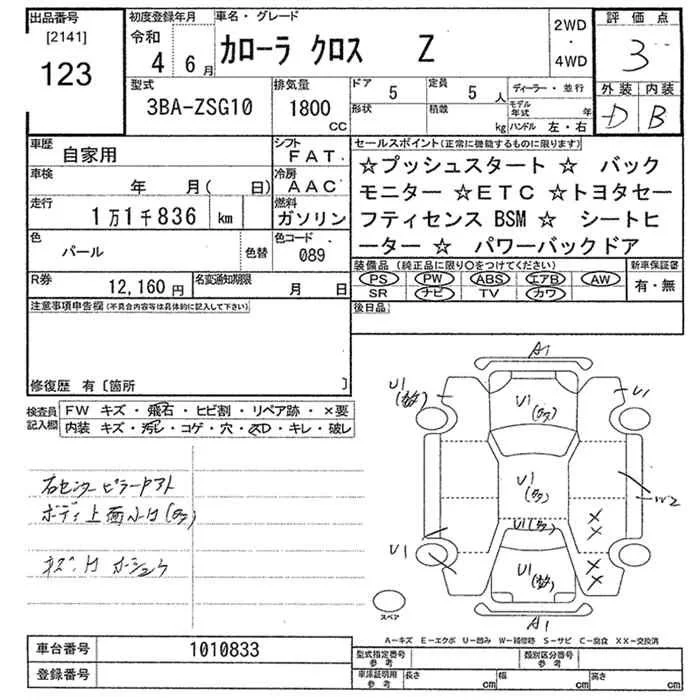 出品番号 初度登録年月 車名・グレード 評価点
[2141] 令和 カローラ クロス Z 2WD
123 4 6月 ・ 3
4WD 外装 内装
型式 排気量 ドア 定員 ディーラー・並行 D B
3BA-ZSG10 1800 5 5人 モデル年式 年
CC 形状 積載 kg ハンドル 左・右
車歴 自家用 シフト FAT セールスポイント(正常に機能するものに限ります)
車検 年 月( 日) 冷房 AAC ☆プッシュスタート ☆ バック
走行 1万1千836 km 燃料 ガソリン モニター ☆ETC ☆トヨタセー
色 パール 色替 色コード 089 フティセンス BSM ☆ シートヒ
ーター ☆ パワーバックドア
R券 12,160円 名変通知期限 月 日 装備品(純正品に限り○をつけてください) 新車保証書
PS PW ABS エアB AW 有・無
SR ナビ TV カワ
注意事項申告欄(不具合内容等は具体的に記入して下さい) 後日品
修復歴 有〔箇所 〕
検査員記入欄 FW キズ・飛石・ヒビ割・リペア跡・×要
内装 キズ・汚レ・コゲ・穴・スD・キレ・破レ
A1
U1 U1 U1
右センターピラーアト U1
ボディ上面小U U1
U1 W2
××
U1 U1 ××
スペア A1
A-キズ E-エクボ U-凹み W-補修跡 S-サビ C-腐食 XX-交換済
車台番号 1010833 型式指定番号 参考 類別区分番号 参考
登録番号 車庫証明用 参考 長さ cm 幅 cm 高さ cm